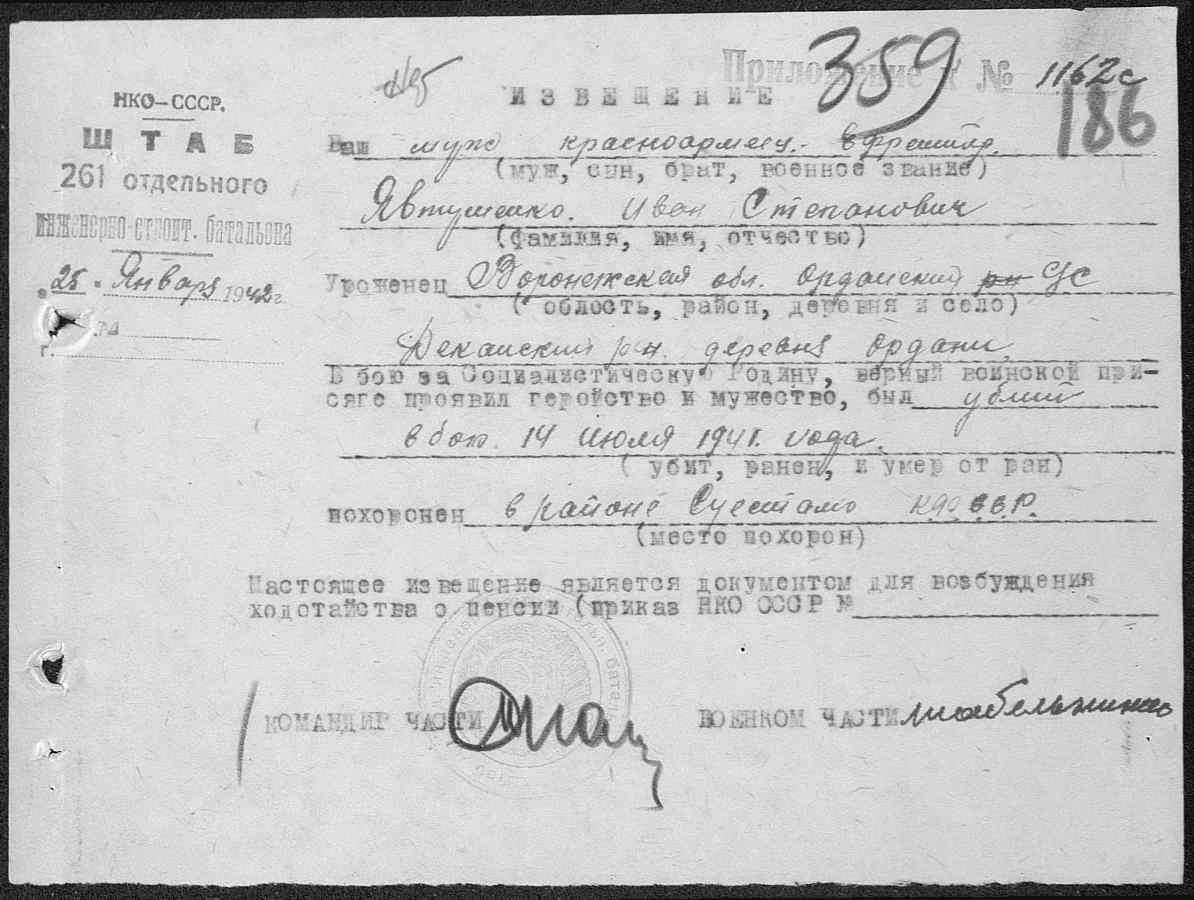 359
Приложение к № 1162с
186
НКО-СССР.
ШТАБ
261 отдельного
инженерно-строит. батальона
"25" Января 1942 г.
г.
ИЗВЕЩЕНИЕ
Ваш муж красноармеец.-
(муж, сын, брат, военное звание)
Явтушенко. Иван Степанович
(фамилия, имя, отчество)
Уроженец Воронежская обл. Орданский рн УС
( облость, район, деревня и село)
Деканский рн. деревня Ордани,
В бою за Социалистическую Родину, верный воинской при-
сяге проявил геройство и мужество, был убит
в бою 14 июля 1941 г. года.
( убит, ранен, и умер от ран)
похоронен в районе Суестамо КФССР.
(место похорон)
Настоящее извещение является документом для возбуждения
ходотайства о пенсии (приказ НКО СССР №
КОМАНДИР ЧАСТИ
ВОЕНКОМ ЧАСТИ